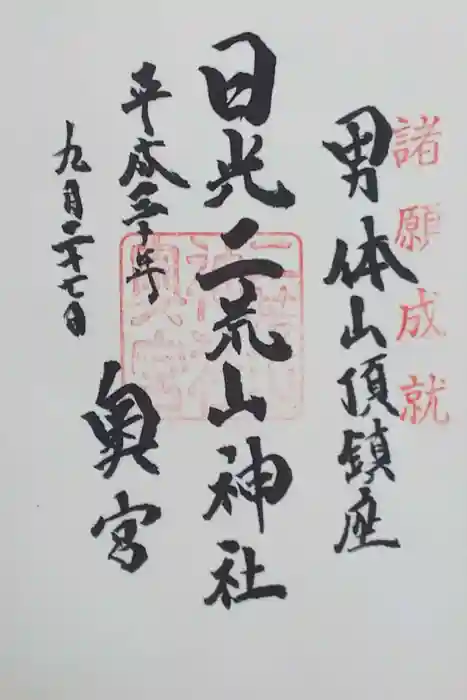 諸願成就
男体山頂鎮座
日光二荒山神社
平成三十年
九月二十七日
奥宮